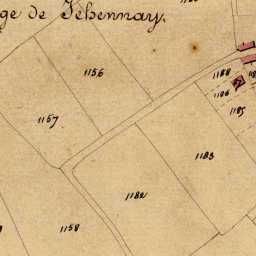 ge de Jebennay.
1156
1188
1186
1185
1157
1183
1182
1158